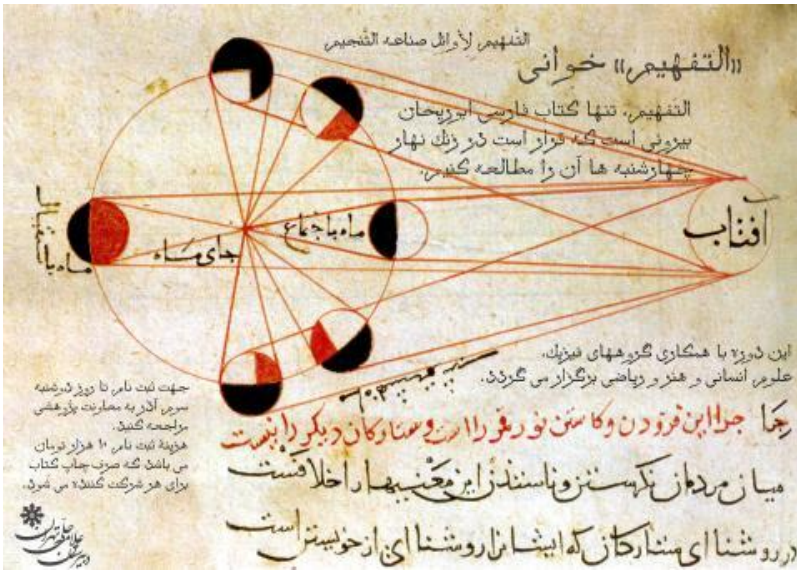 التفهیم لأوائل صناعه التنجیم
«التفهیم» خوانی
التفهیم، تنها کتاب فارسی ابوریحان
بیرونی است که قرار است در زنگ نهار
چهارشنبه ها آن را مطالعه کنیم.
آفتاب
ماه باجتماع
جای ماه
ماه باستقبال
این دوره با همکاری گروههای فیزیک،
علوم انسانی و هنر و ریاضی برگزار می گردد.
جهت ثبت نام، تا روز دوشنبه
سوم آذر به معاونت پژوهشی
مراجعه کنید.
هزینۀ ثبت نام، ۱۰ هزار تومان
می باشد که صرف چاپ کتاب
برای هر شرکت کننده می شود.
چرا این فزودن و کاستن نور قمر را است و ستارکان دیکر را نیست
میان مردمان نکرستن و ناسندن این معنیها را خلافست
در روشنا ای ستارکان که ایشانرا روشنا ای از خویشتن است